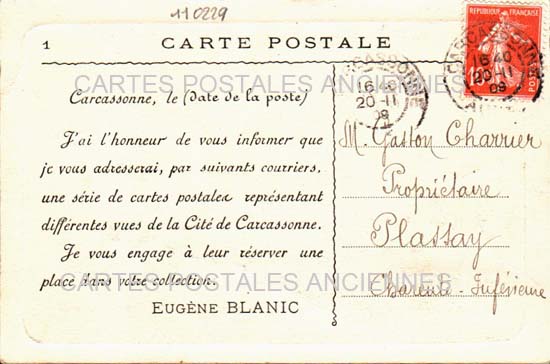 110229
1 CARTE POSTALE
REPUBLIQUE FRANÇAISE
POSTES
CARCASSONNE
16 40
20-11
09
CARCASSONNE
16 40
20-11
09
CARTES POSTALES ANCIENNES
Carcassonne, le (date de la poste)
J'ai l'honneur de vous informer que
je vous adresserai, par suivants courriers,
une série de cartes postales représentant
différentes vues de la Cité de Carcassonne.
Je vous engage à leur réserver une
place dans votre collection.
EUGÈNE BLANIC
CARTES POSTALES ANCIENNES
M. Gaston Charrier
Propriétaire
Plassay
Charente-Inférieure